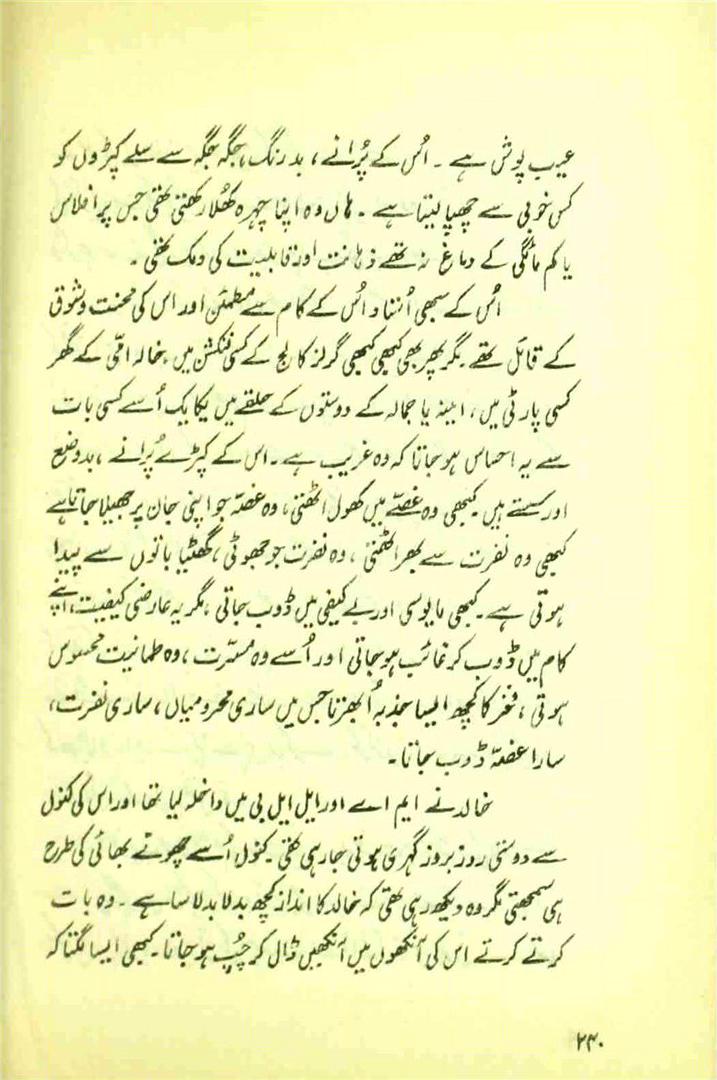 عیب پوش ہے ۔ اُس کے پُرانے ، بد رنگ ، جگہ جگہ سے سلے کپڑوں کو
کس خوبی سے چھپا لیتا ہے ۔ ہاں وہ اپنا چہرہ کھُلا رکھتی تھی جس پر افلاس
یا کم مائگی کے دماغ نہ تھے ذہانت اور قابلیت کی دمک تھی ۔
اُس کے سبھی اُستاد اُس کے کام سے مطمئن اور اس کی محنت و شوق
کے قائل تھے ۔ مگر پھر بھی کبھی کبھی گرلز کالج کے کسی فنکشن میں ، خالہ امّی کے گھر
کسی پارٹی میں ، امینہ یا جمالہ کے دوستوں کے حلقے میں یکایک اُسے کسی بات
سے یہ احساس ہو جاتا کہ وہ غریب ہے ۔ اس کے کپڑے پُرانے ، بدوضع
اور سستے ہیں ۔ کبھی وہ غصّے میں کھول اٹھتی ، وہ غصّہ جو اپنی جان پر جھیلا جاتا ہے
کبھی وہ نفرت سے بھر اٹھتی ، وہ نفرت جو جھوٹی ، گھٹیا باتوں سے پیدا
ہوتی ہے ۔ کبھی مایوسی اور بے کیفی میں ڈوب جاتی ، مگر یہ عارضی کیفیت ، اپنے
کام میں ڈوب کر غائب ہو جاتی اور اُسے وہ مسرّت ، وہ طمانیت محسوس
ہوتی ، فخر کا کچھ ایسا جذبہ اُبھرتا جس میں ساری محرومیاں ، ساری نفرت ،
سارا غصّہ ڈوب جاتا ۔
خالد نے ایم اے اور ایل ایل بی میں داخلہ لیا تھا اور اس کی کنول
سے دوستی روز بروز گہری ہوتی جا رہی تھی ۔ کنول اُسے چھوٹے بھائی کی طرح
ہی سمجھتی مگر وہ دیکھ رہی تھی کہ خالد کا انداز کچھ بدلا بدلا سا ہے ۔ وہ بات
کرتے کرتے اس کی آنکھوں میں آنکھیں ڈال کر چُپ ہو جاتا ۔ کبھی ایسا لگتا کہ
۲۳۰